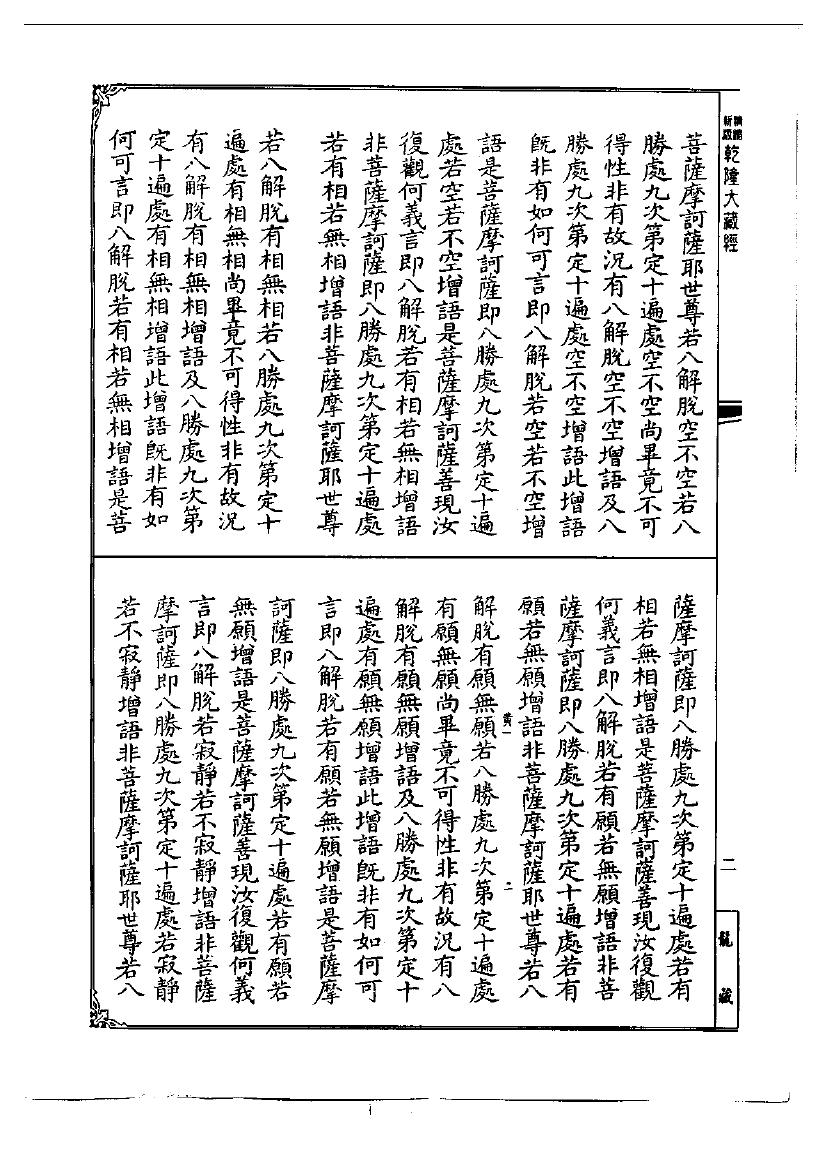 乾隆大藏經
菩薩摩訶薩耶世尊若八解脫空不空若八
勝處九次第定十遍處空不空尚畢竟不可
得性非有故況有八解脫空不空增語及八
勝處九次第定十遍處空不空增語此增語
旣非有如何可言即八解脫若空若不空增
語是菩薩摩訶薩即八勝處九次第定十遍
處若空若不空增語是菩薩摩訶薩善現汝
復觀何義言即八解脫若有相若無相增語
非菩薩摩訶薩即八勝處九次第定十遍處
若有相若無相增語非菩薩摩訶薩耶世尊
若八解脫有相無相若八勝處九次第定十
遍處有相無相尚畢竟不可得性非有故況
有八解脫有相無相增語及八勝處九次第
定十遍處有相無相增語此增語旣非有如
何可言即八解脫若有相若無相增語是菩
薩摩訶薩即八勝處九次第定十遍處若有
相若無相增語是菩薩摩訶薩善現汝復觀
何義言即八解脫若有願若無願增語非菩
薩摩訶薩即八勝處九次第定十遍處若有
願若無願增語非菩薩摩訶薩耶世尊若八
黃一
二
解脫有願無願若八勝處九次第定十遍處
有願無願尚畢竟不可得性非有故況有八
解脫有願無願增語及八勝處九次第定十
遍處有願無願增語此增語旣非有如何可
言即八解脫若有願若無願增語是菩薩摩
訶薩即八勝處九次第定十遍處若有願若
無願增語是菩薩摩訶薩善現汝復觀何義
言即八解脫若寂靜若不寂靜增語非菩薩
摩訶薩即八勝處九次第定十遍處若寂靜
若不寂靜增語非菩薩摩訶薩耶世尊若八
二
龍藏